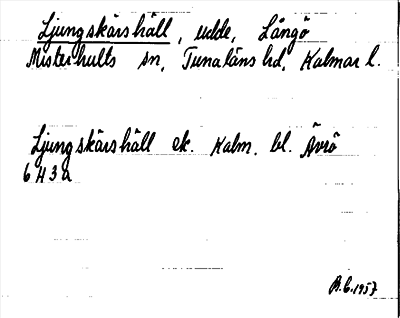 Ljungskärshäll, udde, Långö
Misterhults sn, Tunaläns hd, Kalmar l.
Ljungskärshäll ek. Kalm. bl. Ävrö
6 H 3 a
B.C. 1957